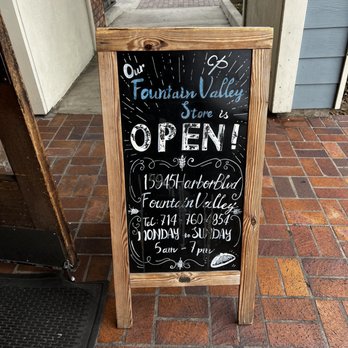 Our
Fountain Valley
Store is
OPEN!
15945 Harbor Blvd
Fountain Valley
Tel: 714-760-4854
MONDAY to SUNDAY
5am - 7pm